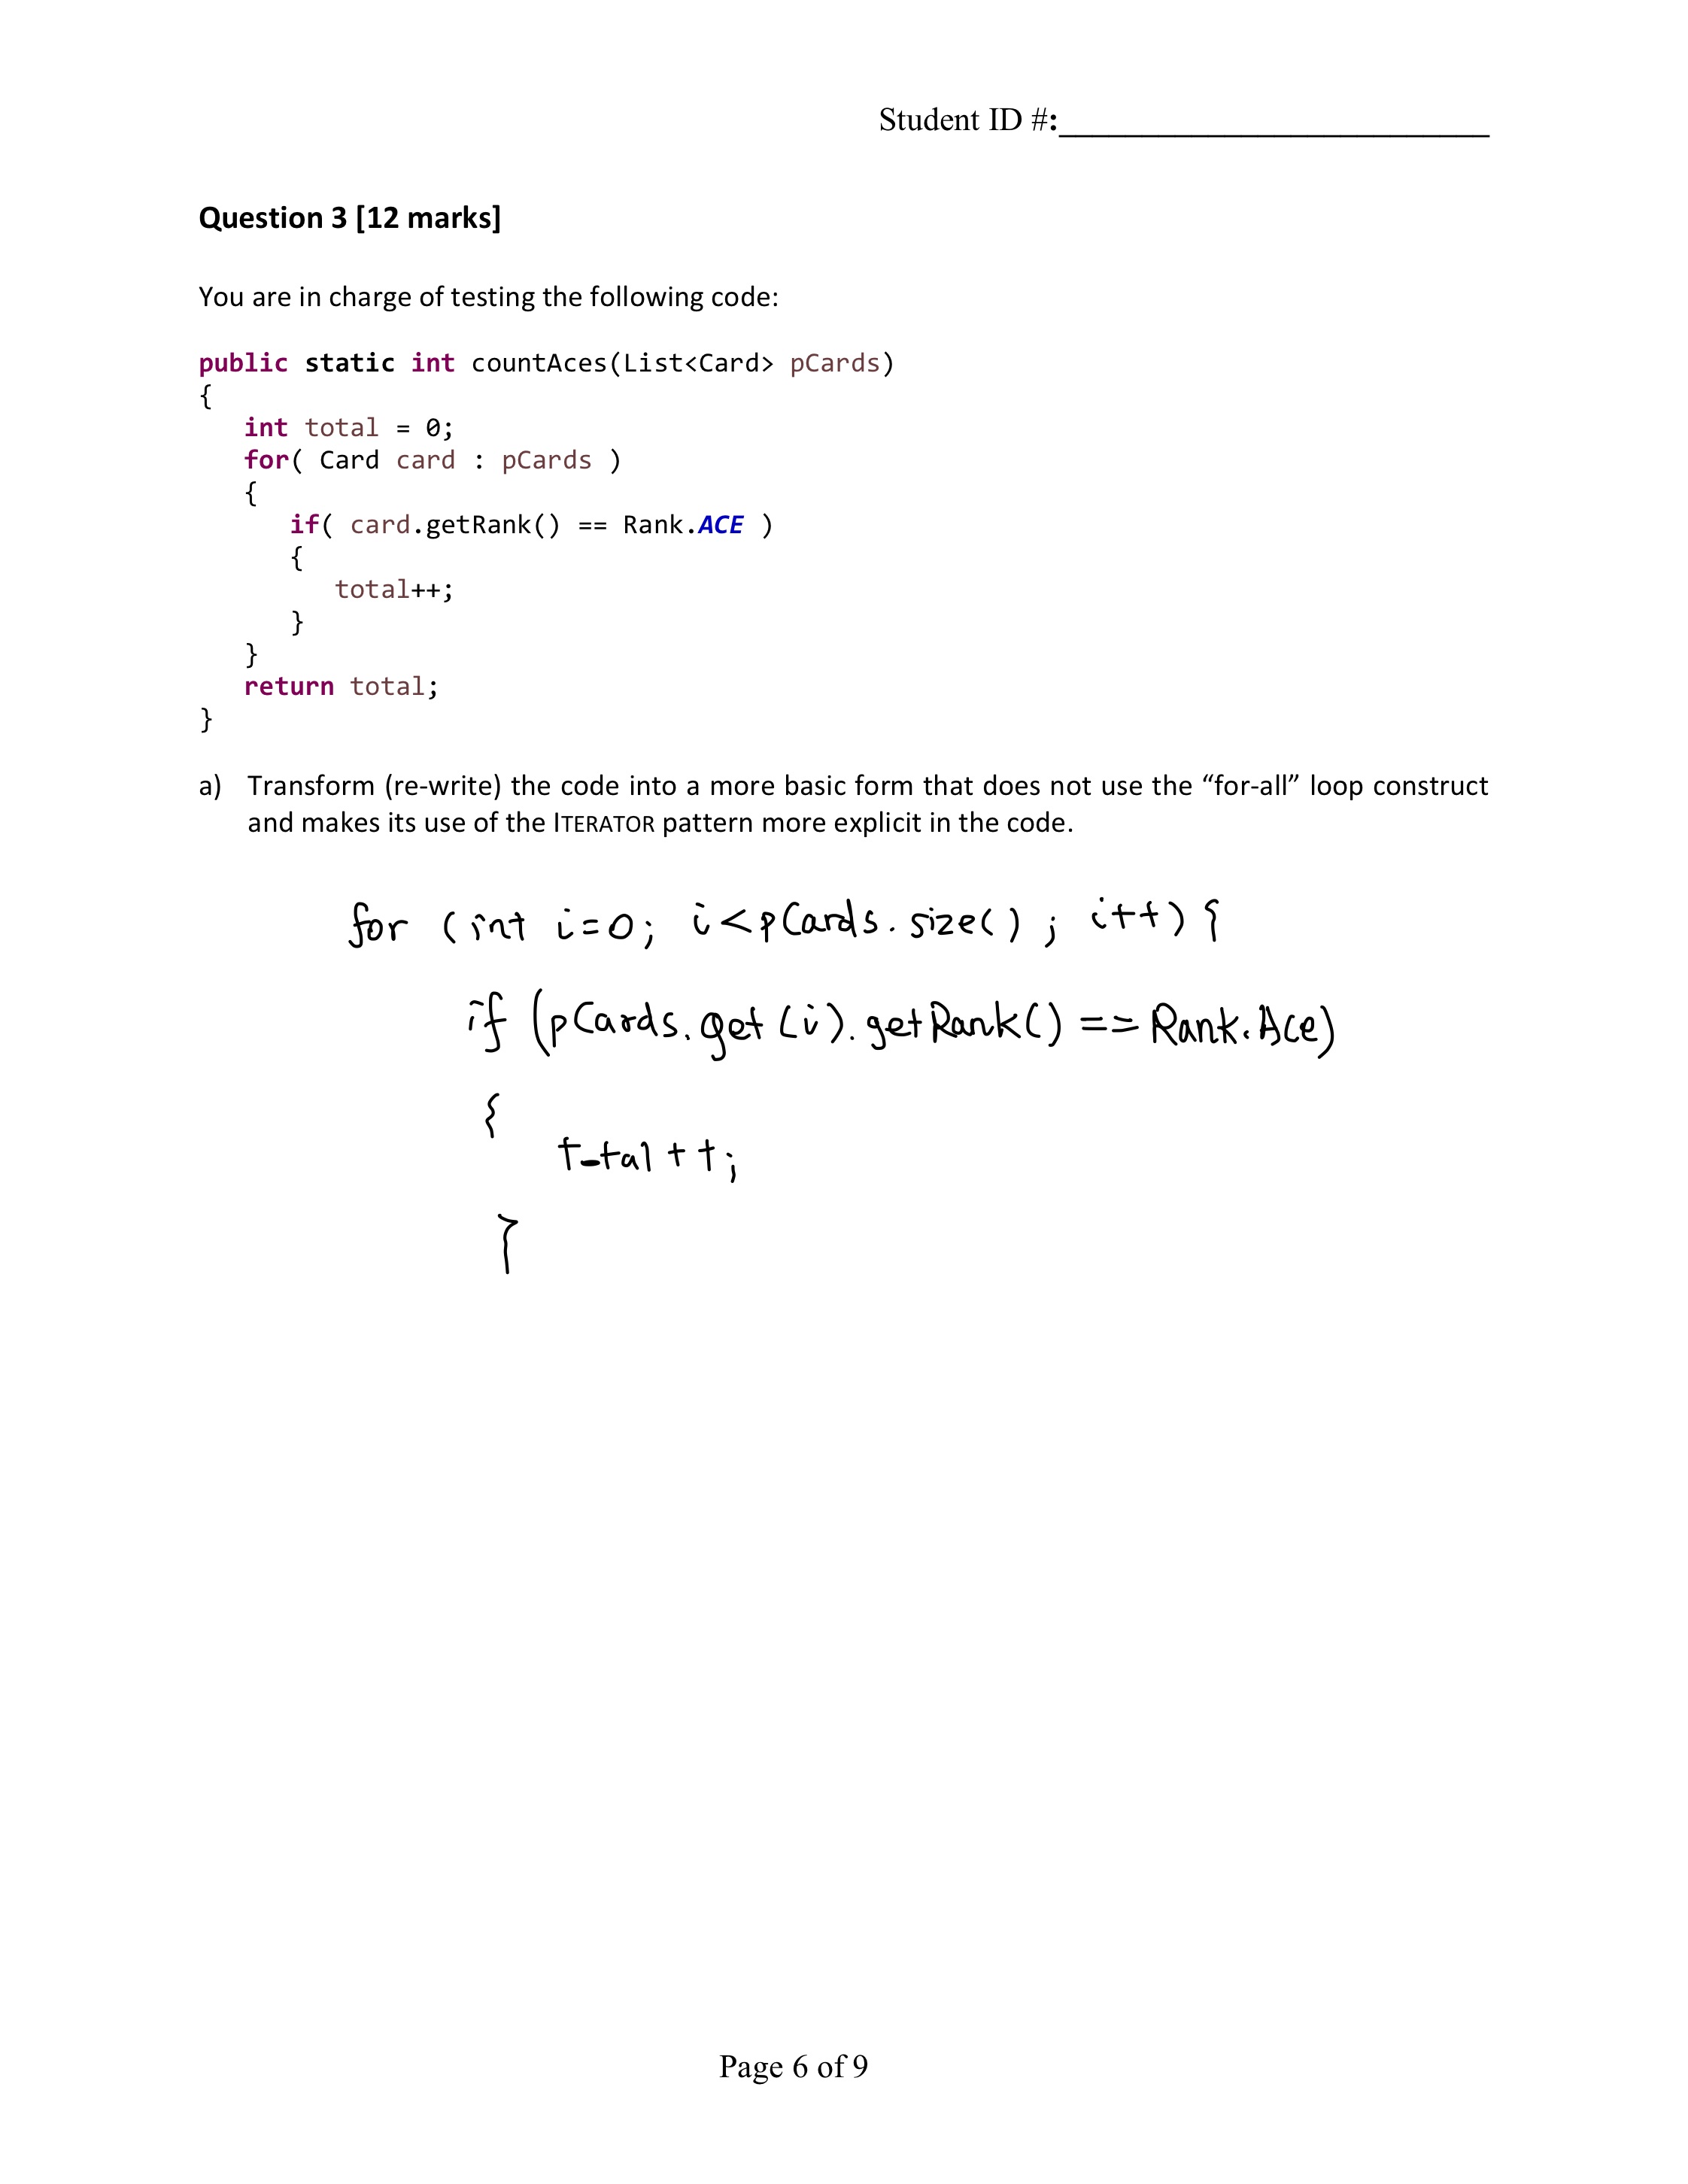 Student ID #:__________________________
Question 3 [12 marks]
You are in charge of testing the following code:
public static int countAces(List<Card> pCards)
{
   int total = 0;
   for( Card card : pCards )
   {
      if( card.getRank() == Rank.ACE )
      {
         total++;
      }
   }
   return total;
}
a) Transform (re-write) the code into a more basic form that does not use the “for-all” loop construct
and makes its use of the ITERATOR pattern more explicit in the code.
for (int i=0; i<pCards.size() ; i++) {
if (pCards.get(i).getRank() == Rank.Ace)
{
total++;
}
Page 6 of 9